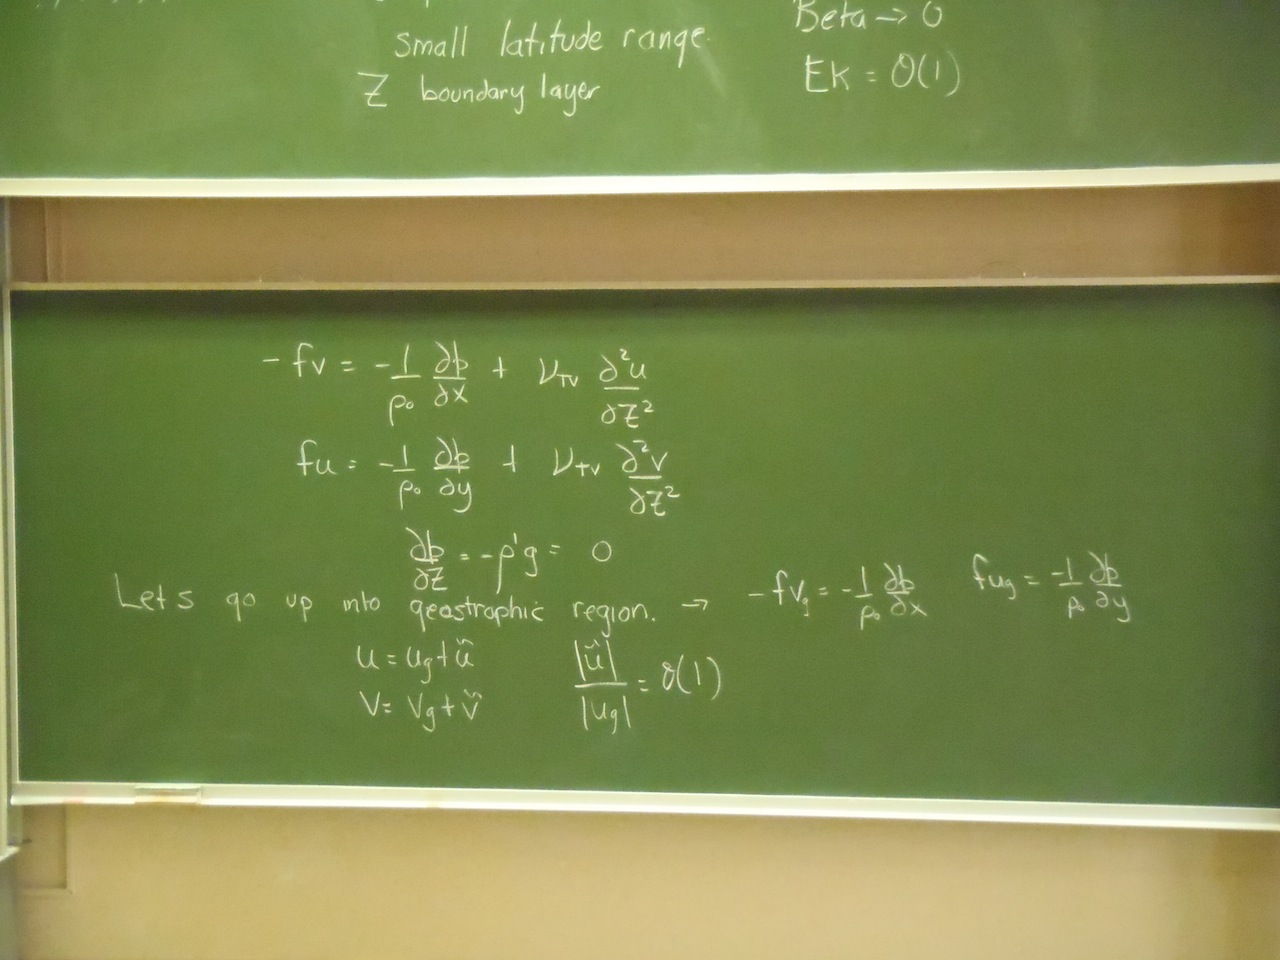 small latitude range
Beta → 0
Z boundary layer
Ek = O(1)
-fv = -1/ρ₀ ∂p/∂x + ν_TV ∂²u/∂z²
fu = -1/ρ₀ ∂p/∂y + ν_TV ∂²v/∂z²
∂p/∂z = -ρ'g = 0
Lets go up into geostrophic region. → -fv_g = -1/ρ₀ ∂p/∂x fu_g = -1/ρ₀ ∂p/∂y
u = u_g + ũ |ũ|/|u_g| = O(1)
v = v_g + ṽ